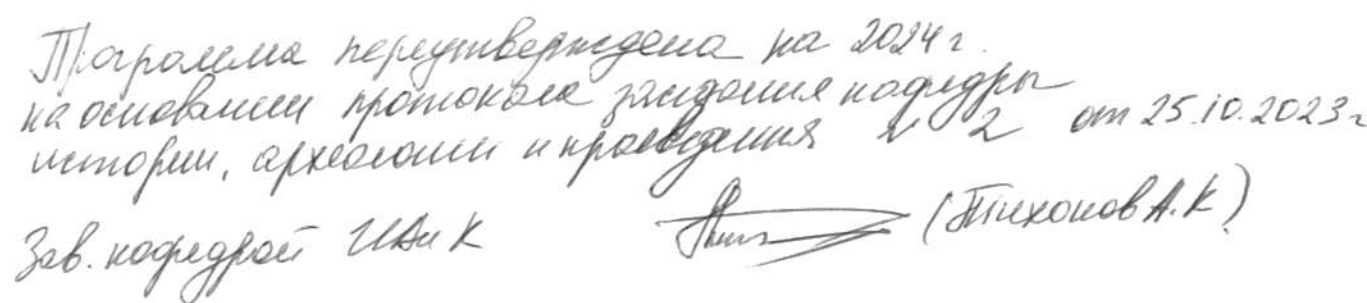 Программа переутверждена на 2024 г.
на основании протокола заседания кафедры
истории, археологии и краеведения № 2 от 25.10.2023 г
Зав. кафедрой ИАиК (Тихонов А.К)